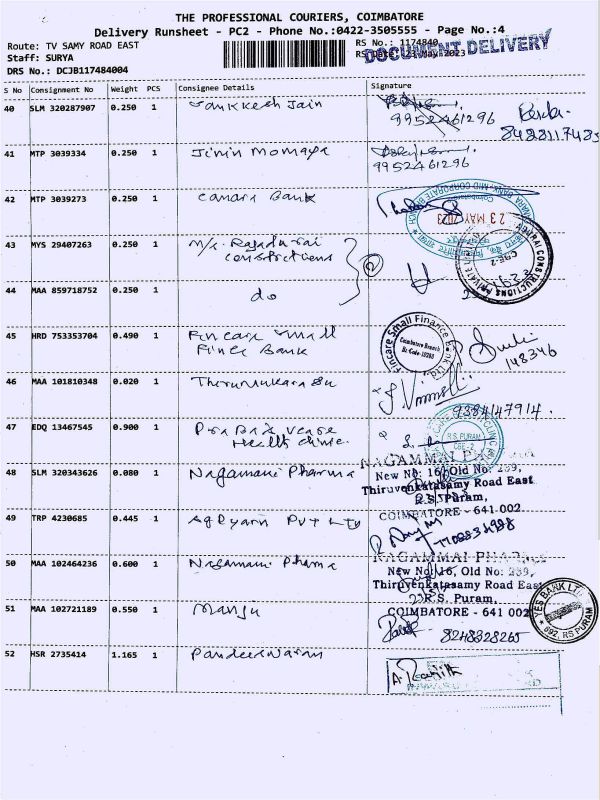 THE PROFESSIONAL COURIERS, COIMBATORE
Delivery Runsheet - PC2 - Phone No.:0422-3505555 - Page No.:4
Route: TV SAMY ROAD EAST RS No.: 1174840
Staff: SURYA RS Date: 23-May-2023
DOCUMENT DELIVERY
DRS No.: DCJB117484004
S No Consignment No Weight PCS Consignee Details Signature
40 SLM 320287907 0.250 1 Jain
9952461296
41 MTP 3039334 0.250 1 Jinin Momaya
9952461296
42 MTP 3039273 0.250 1 Canara Bank
23 MAY 2023
43 MYS 29407263 0.250 1 M/s. Rajadurai
constrctions
44 MAA 859718752 0.250 1 do
2
45 HRD 753353704 0.490 1 Fincare Small
Fince Bank
Fincare Small Finance Bank Ltd.
Coimbatore Branch
148346
46 MAA 101810348 0.020 1
9384147914.
47 EDQ 13467545 0.900 1
R.S. PURAM
CBE - 2
48 SLM 320343626 0.080 1 Nagamani Pharma
NAGAMMAI PHARMA
New No: 16, Old No: 239,
Thiruvenkatasamy Road East
R.S. Puram,
COIMBATORE - 641 002
49 TRP 4230685 0.445 1 Pvt Ltd
50 MAA 102464236 0.600 1 Nagamani Pharma
NAGAMMAI PHARMA
New No: 16, Old No: 239,
Thiruvenkatasamy Road East
R.S. Puram,
COIMBATORE - 641 002
51 MAA 102721189 0.550 1 Manju
8248328265
YES BANK LTD
RS PURAM
52 HSR 2735414 1.165 1 Pandeeswaran
A. Ranjith